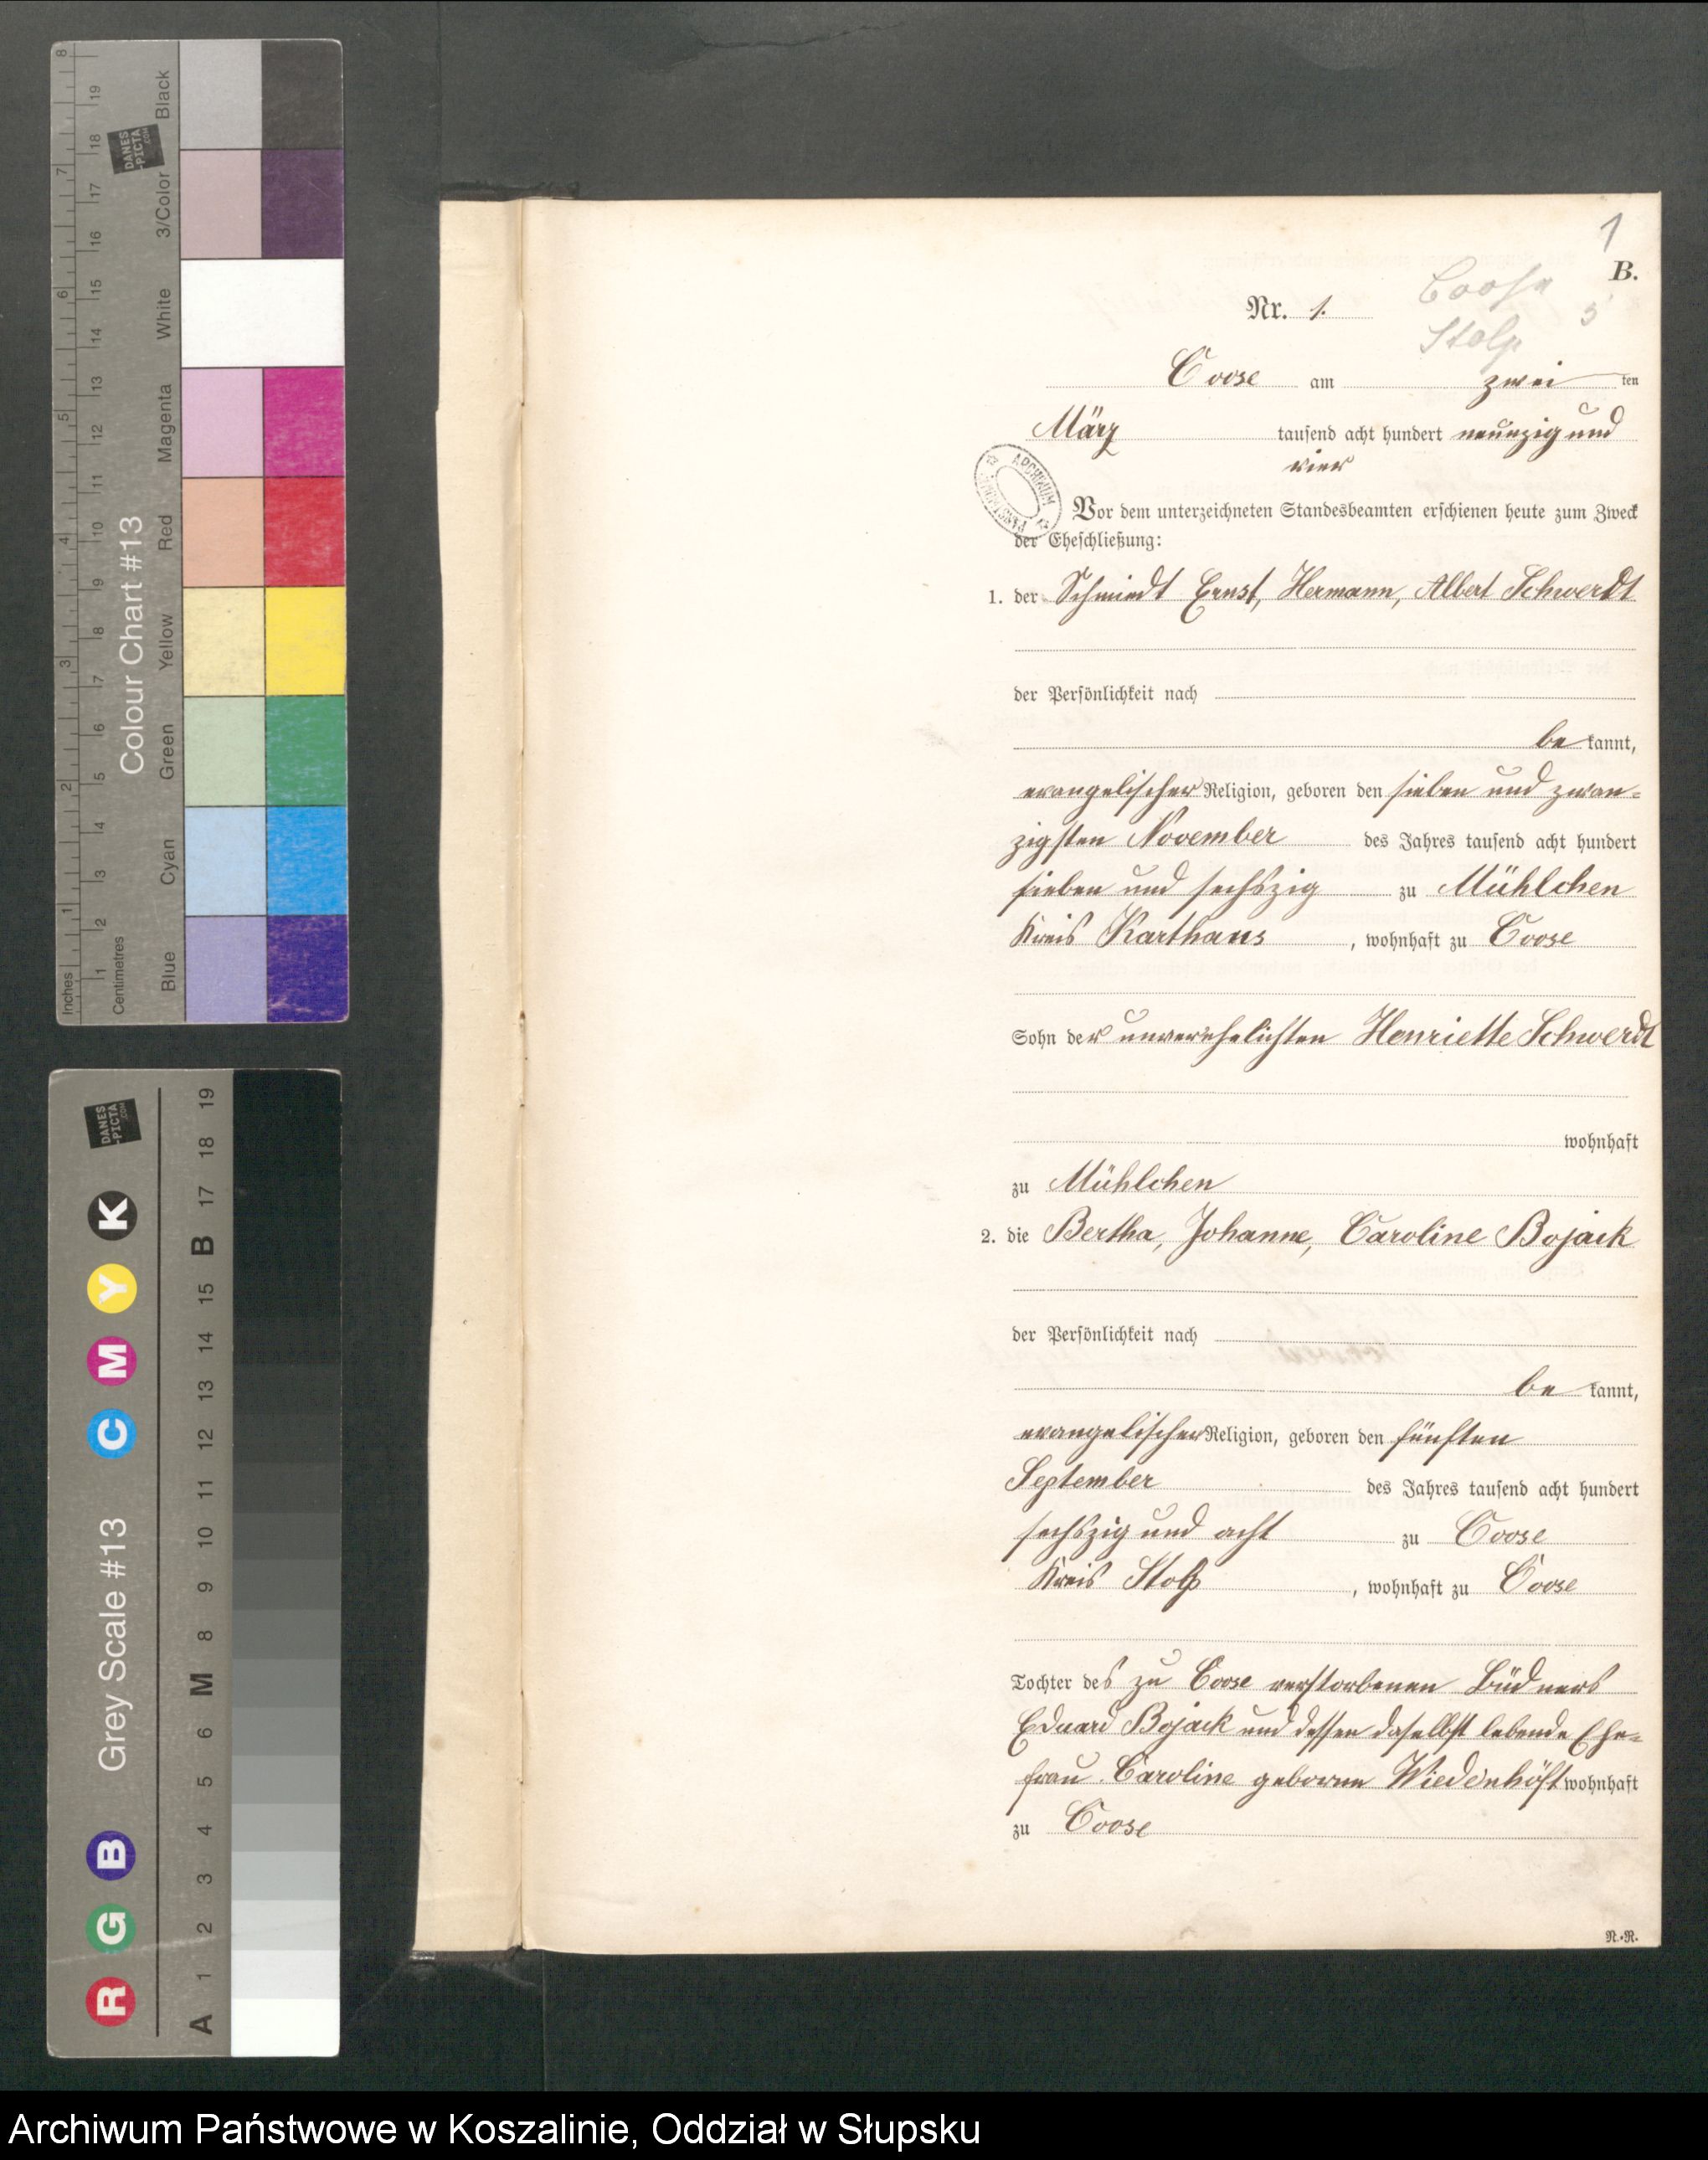 1
B.
Coose
Nr. 1.
5
Stolp
Coose am zwei ten
März tausend acht hundert neunzig und
vier
Vor dem unterzeichneten Standesbeamten erschienen heute zum Zweck
der Eheschließung:
1. der Schmiedt Ernst, Hermann, Albert Schwerdt
der Persönlichkeit nach
be kannt,
evangelischer Religion, geboren den sieben und zwan=
zigsten November des Jahres tausend acht hundert
sieben und sechszig zu Mühlchen
Kreis Karthaus, wohnhaft zu Coose
Sohn der unverehelichten Henriette Schwerdt
wohnhaft
zu Mühlchen
2. die Bertha, Johanne, Caroline Bojack
der Persönlichkeit nach
be kannt,
evangelischer Religion, geboren den fünften
September des Jahres tausend acht hundert
sechszig und acht zu Coose
Kreis Stolp, wohnhaft zu Coose
Tochter des zu Coose verstorbenen Büdners
Eduard Bojack und dessen daselbst lebende Ehe=
frau Caroline geborne Wiedenhöft wohnhaft
zu Coose
N.-N.
ARCHIWUM
Inches
1 2 3 4 5 6 7 8
Centimetres
1 2 3 4 5 6 7 8 9 10 11 12 13 14 15 16 17 18 19
Colour Chart #13
Blue Cyan Green Yellow Red Magenta White 3/Color Black
DANES
-PICTA
.COM
Grey Scale #13
R G B C M Y K
A 1 2 3 4 5 6 M 8 9 10 11 12 13 14 15 B 17 18 19
DANES
-PICTA
.COM
Archiwum Państwowe w Koszalinie, Oddział w Słupsku